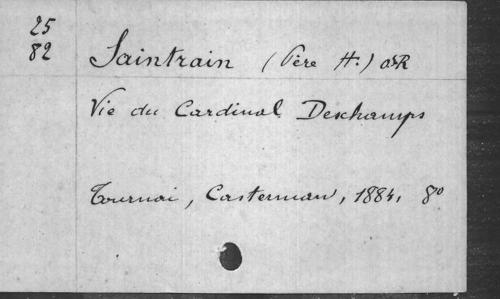 25
82
Saintrain (Père H.) OSR
Vie du Cardinal Deschamps
Tournai, Casterman, 1884, 8º